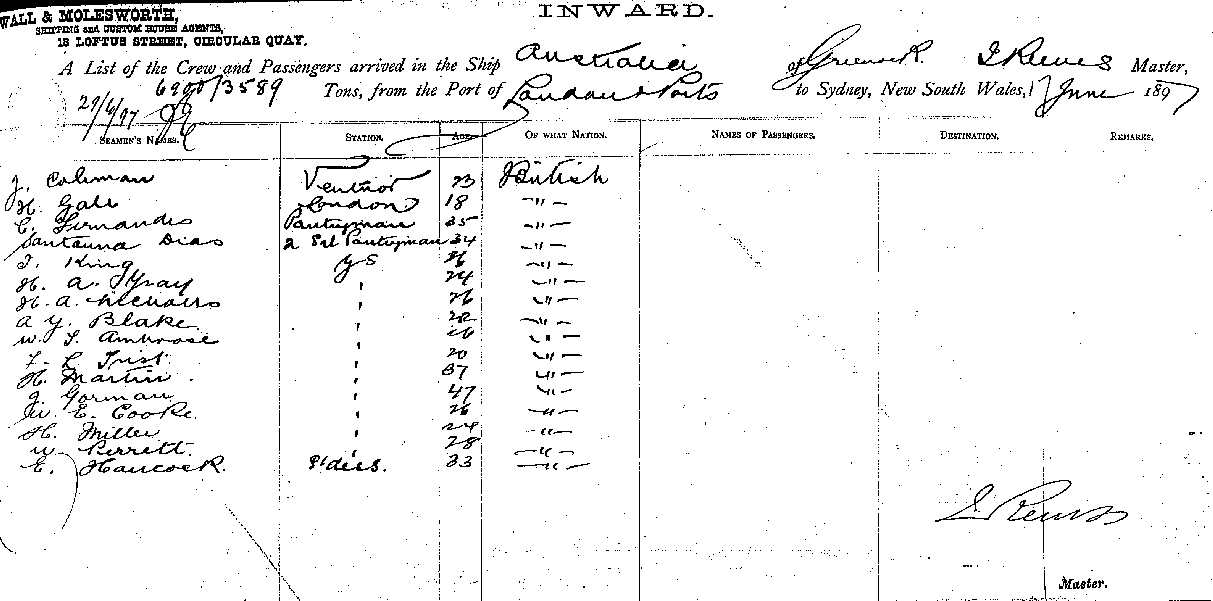 WALL & MOLESWORTH,
SHIPPING and CUSTOM HOUSE AGENTS,
18 LOFTUS STREET, CIRCULAR QUAY.
INWARD.
A List of the Crew and Passengers arrived in the Ship Australia of Greenock Master,
6900/3589 Tons, from the Port of London & Ports to Sydney, New South Wales, June 1897
29/6/97
SEAMEN'S NAMES. STATION. AGE. OF WHAT NATION. NAMES OF PASSENGERS. DESTINATION. REMARKS.
J. Coleman 23 British
H. Gale 18 -"-
C. Fernandes Pantryman 35 -"-
Santanna Dias 2 Pantryman 34 -"-
T. King GS 26 -"-
H. A. Gray ' 24 -"-
H. A. ' 26 -"-
A Y. Blake ' 22 -"-
W. F. Ambrose ' 26 -"-
F. L Trist. ' 20 -"-
H. Martin. ' 37 -"-
J. Gorman ' 47 -"-
W. E. Cooke. ' 26 -"-
H. Miller ' 24 -"-
W. Perrett. ' 28 -"-
E. Hancock. 33 -"-
Master.